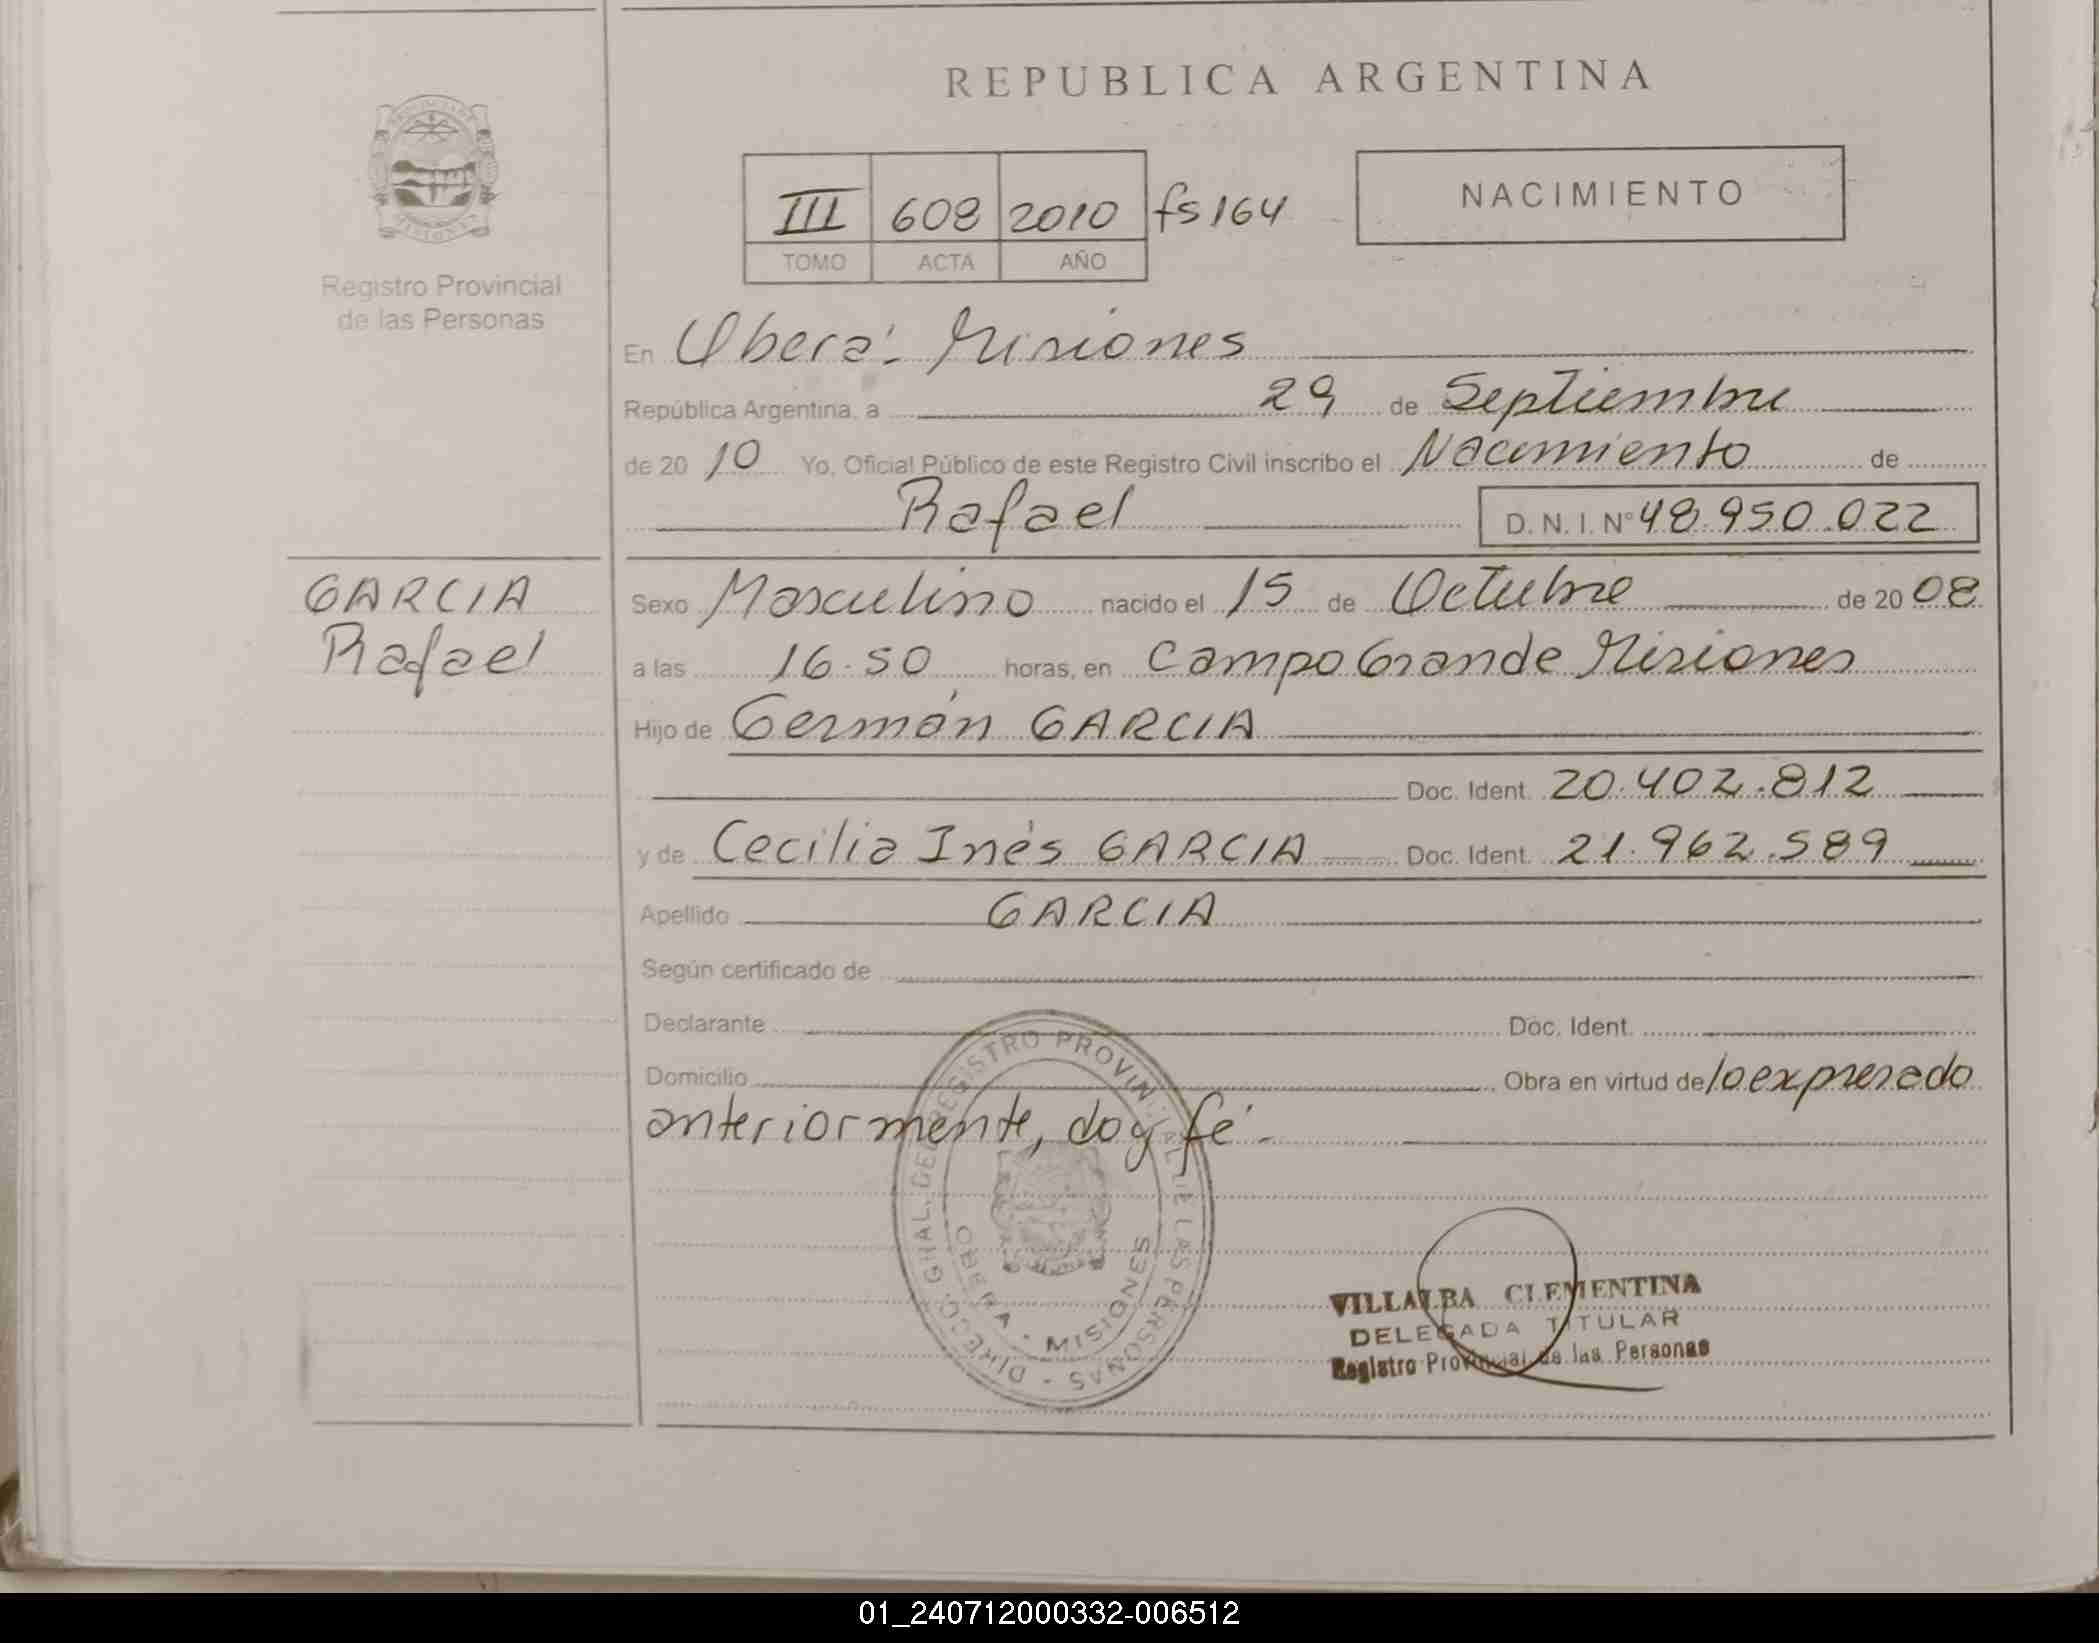 REPUBLICA ARGENTINA
NACIMIENTO
III 608 2010 fs 164
TOMO ACTA AÑO
Registro Provincial
de las Personas
En Oberá - Misiones
República Argentina, a 29 de Septiembre
de 20 10 Yo, Oficial Público de este Registro Civil inscribo el Nacimiento de
Rafael D.N.I. Nº 48.950.022
GARCIA
Rafael
Sexo Masculino nacido el 15 de Octubre de 20 08
a las 16.50 horas, en Campo Grande Misiones
Hijo de Germán GARCIA
Doc. Ident. 20.402.812
y de Cecilia Inés GARCIA Doc. Ident. 21.962.589
Apellido GARCIA
Según certificado de
Declarante Doc. Ident.
Domicilio Obra en virtud de lo expresado
anteriormente, doy fé.-
DIRECC. GRAL. DEL REGISTRO PROVINCIAL DE LAS PERSONAS
OBERA - MISIONES
VILLALBA CLEMENTINA
DELEGADA TITULAR
Registro Provincial de las Personas
01_240712000332-006512